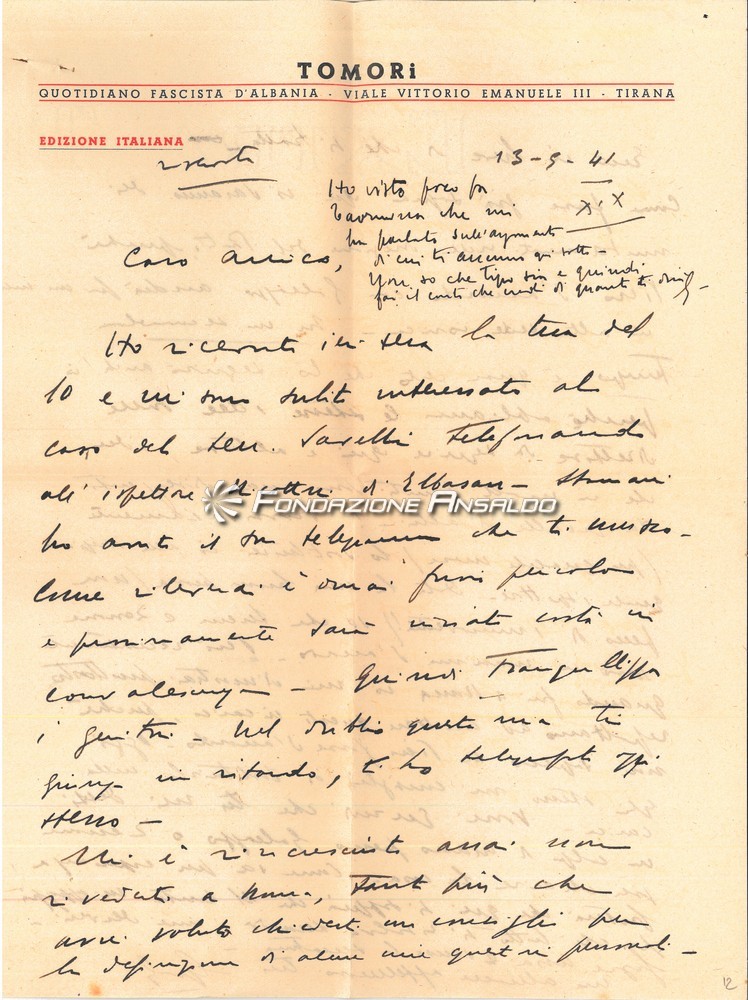 TOMORi
QUOTIDIANO FASCISTA D'ALBANIA - VIALE VITTORIO EMANUELE III - TIRANA
EDIZIONE ITALIANA
13-9-41
Ho visto poco fa
che mi
ha parlato sull'argomento
di cui ti accenno qui sotto -
Non so che tipo sia e quindi
fai il conto che credi di quanto ti dirà -
Caro Amico,
Ho ricevuto ieri sera la tua del
10 e mi sono subito interessato al
caso del ten. telefonando
all'ispettore di Elbasan - Stamani
ho avuto il suo telegramma che ti unisco -
Come rileverai è ormai fuori pericolo
e prossimamente sarà inviato costà in
convalescenza - Quindi tranquillizza
i genitori - Nel dubbio questa mia ti
giunga in ritardo, ti ho telegrafato oggi
stesso -
Mi è rincresciuto assai non
rivederti a Roma, tanto più che
avrei voluto chiederti un consiglio per
la definizione di alcune mie questioni personali -
FONDAZIONE ANSALDO
12